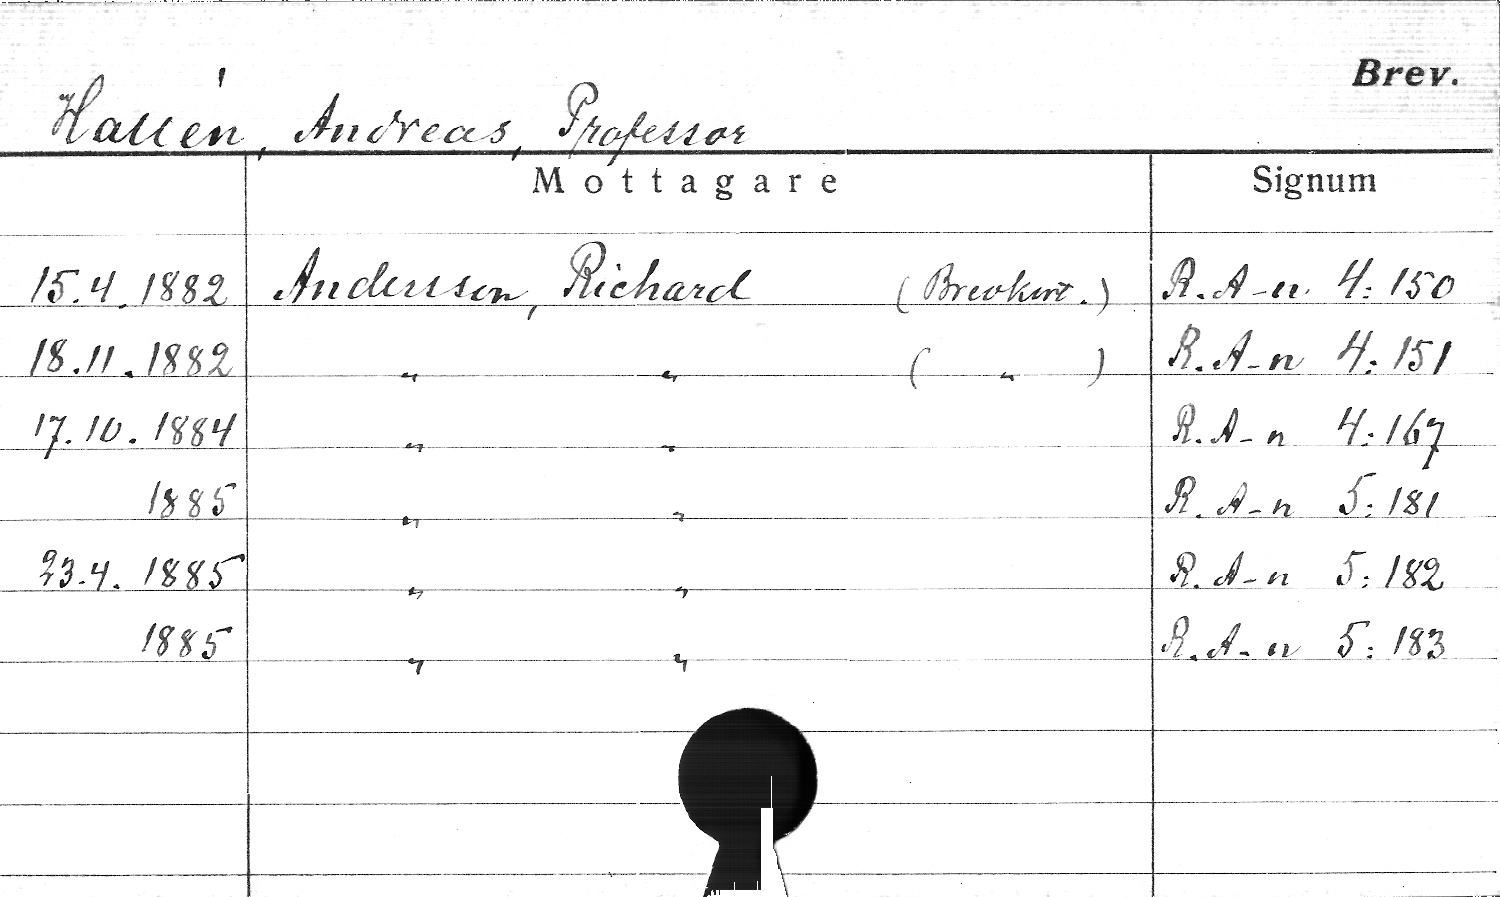 Brev.
Hallén, Andreas, Professor
Mottagare Signum
15.4.1882 Andersson, Richard (Brevkort.) R. A-n. 4:150
18.11.1882 " " ( " ) R. A-n 4:151
17.10.1884 " " R. A-n 4:167
1885 " " R. A-n 5:181
23.4.1885 " " R. A-n 5:182
1885 " " R. A-n 5:183